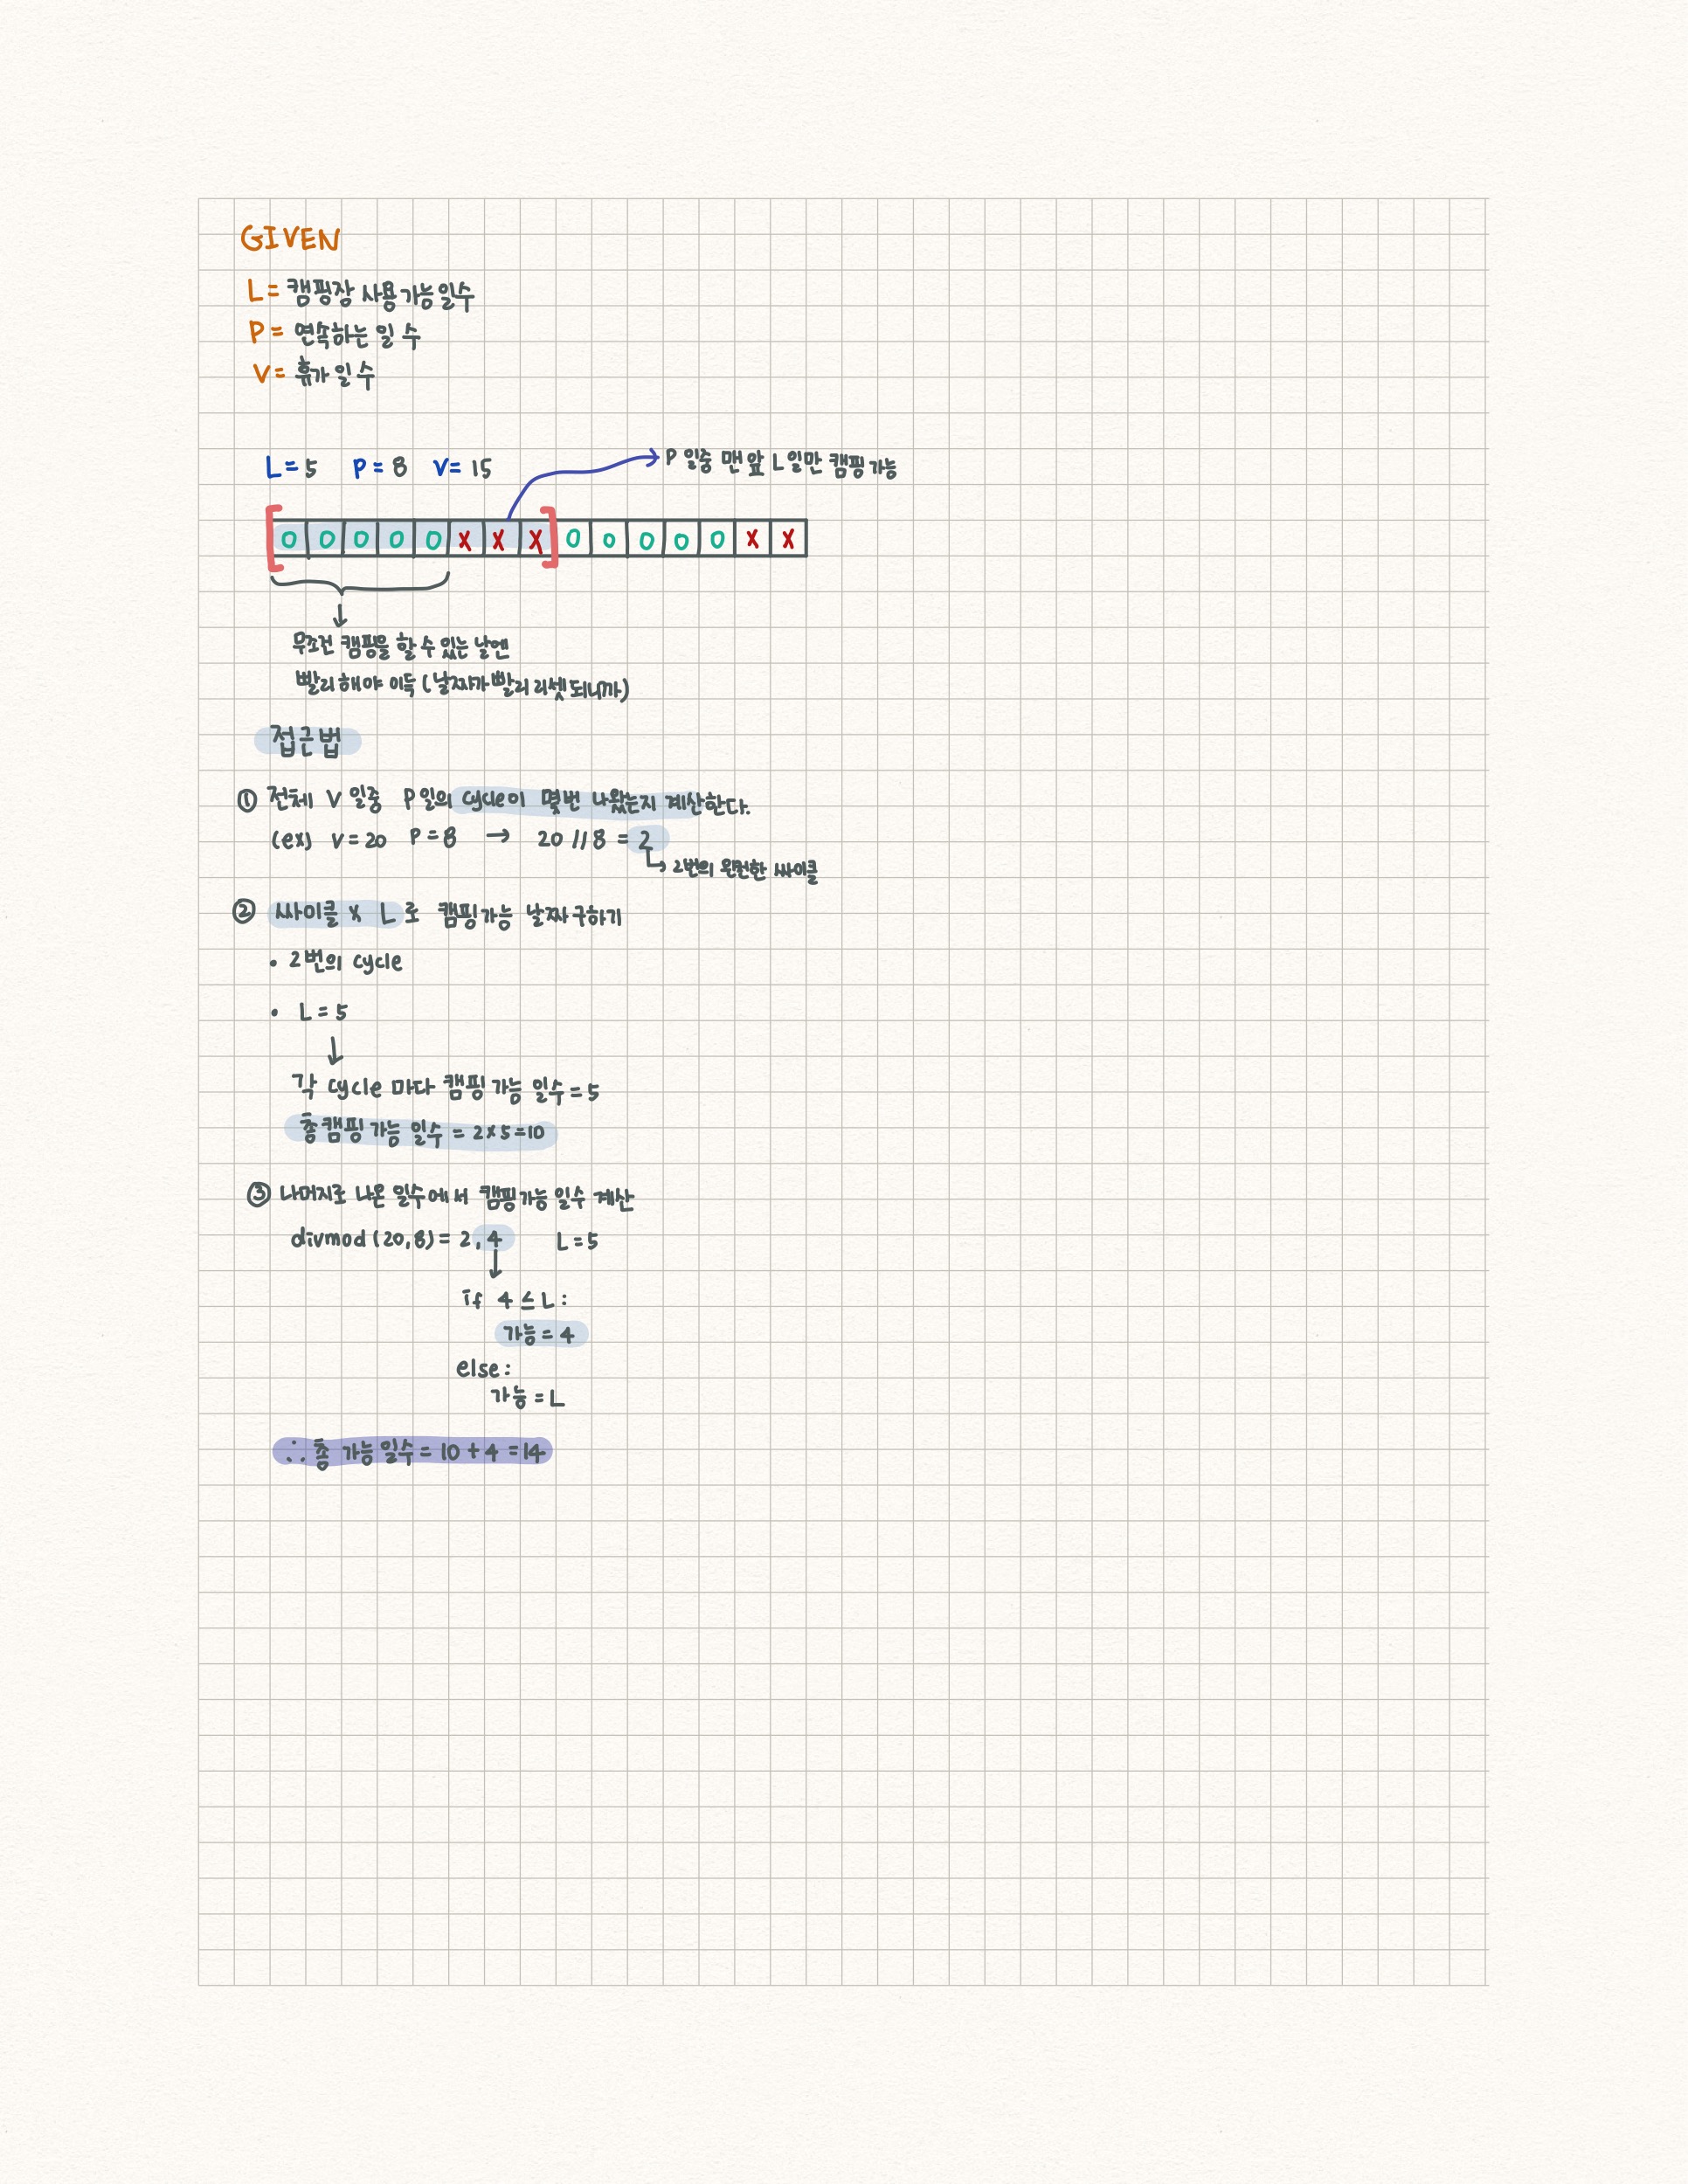 GIVEN
L = 캠핑장 사용 가능 일수
P = 연속하는 일 수
V = 휴가 일 수
L = 5 P = 8 V = 15
P 일중 맨 앞 L일만 캠핑 가능
O O O O O X X X O O O O O X X
무조건 캠핑을 할 수 있는 날엔
빨리 해야 이득 (날짜가 빨리 리셋 되니까)
접근법
① 전체 V 일중 P 일의 cycle이 몇번 나왔는지 계산한다.
(ex) V = 20 P = 8 → 20 // 8 = 2
↳ 2번의 완전한 싸이클
② 싸이클 x L 로 캠핑 가능 날짜 구하기
• 2번의 cycle
• L = 5
↓
각 cycle 마다 캠핑 가능 일수 = 5
총 캠핑 가능 일수 = 2 x 5 = 10
③ 나머지로 나온 일수에서 캠핑 가능 일수 계산
divmod (20, 8) = 2, 4 L = 5
↓
if 4 ≤ L :
가능 = 4
else :
가능 = L
∴ 총 가능 일수 = 10 + 4 = 14